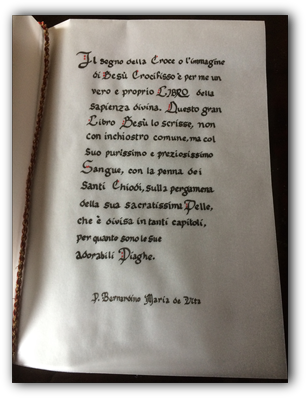 Il segno della Croce o l'immagine
di Gesù Crocifisso è per me un
vero e proprio LIBRO della
sapienza divina. Questo gran
Libro Gesù lo scrisse, non
con inchiostro comune, ma col
Suo purissimo e preziosissimo
Sangue, con la penna dei
Santi Chiodi, sulla pergamena
della sua sacratissima Pelle,
che è divisa in tanti capitoli,
per quante sono le sue
adorabili Piaghe.
P. Bernardino Maria de Vita